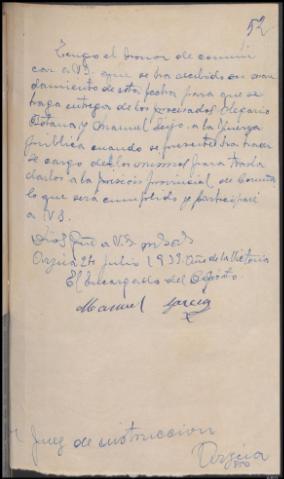 52
Tengo el honor de comuni
car a V.S. que se ha recibido su man
damiento de esta fecha para que se
haga entrega de los procesados Olegario
Botana y Manuel Seijo, a la fuerza
pública cuando se presente ha hacer
se cargo de los mismos para trasla
darlos a la prisión provincial de Coruña
lo que será cumplido y participaré
a V.S.
Dios gue a V.S. m
Arzúa 24 julio 1939. Año de la Victoria
El Encargado del Depósito
Manuel García
Juez de instruccion
Arzúa